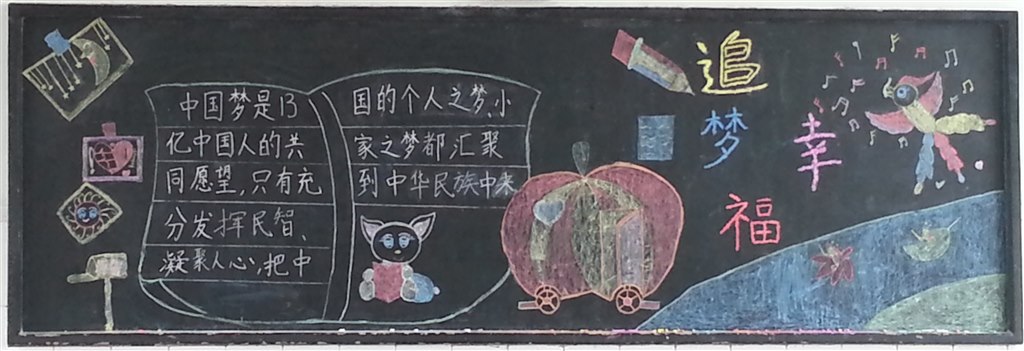 中国梦是13
亿中国人的共
同愿望,只有充
分发挥民智、
凝聚人心,把中
国的个人之梦、小
家之梦都汇聚
到中华民族中来
追
梦
幸
福